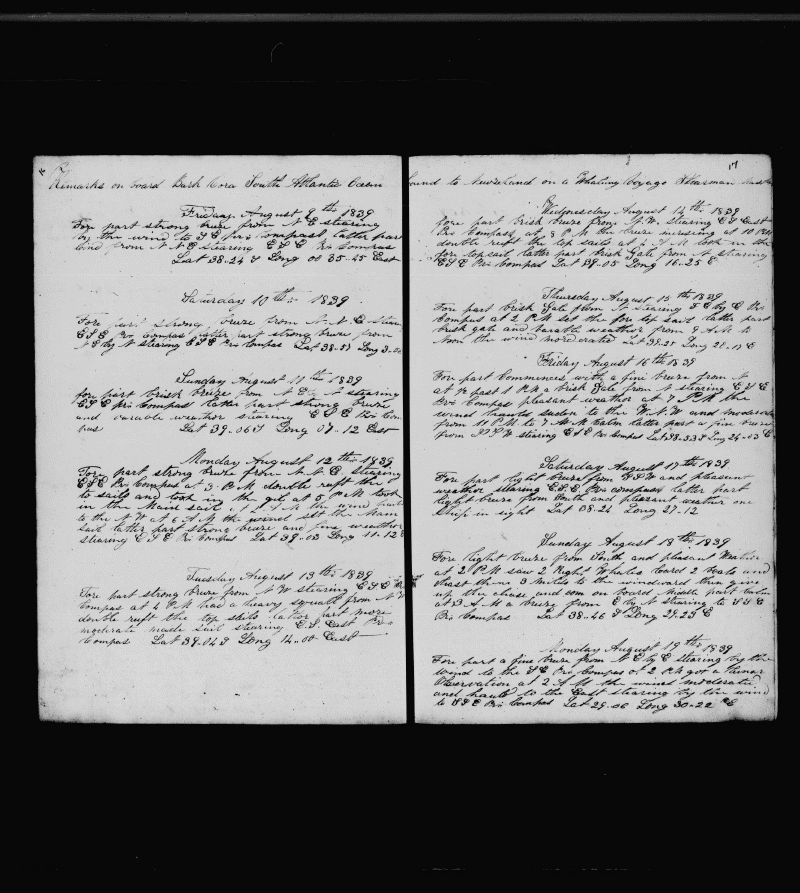 Remarks on board Bark Cora South Atlantic Ocean
Friday August 9th 1839
Fore part strong breze from N E stearing
by the wind to S E Pr Compas latter part
wind from N N E Stearing E S E Pr Compas
Lat 38-24 S Long 00 35-45 East
Saturday 10th 1839
Fore part strong breze from N N E
E S E Pr Compas latter part strong breze from
N E by N stearing E S E Pr Compas Lat 38-51 Long 3-
Sunday August 11th 1839
fore part brisk breze from N E by N stearing
E S E Pr Compas latter part strong breze
and variable weather stearing E S E Pr Com
pas Lat 39-06 S Long 07-12 East
Monday August 12th 1839
Fore part strong breze from N N E stearing
E S E Pr Compas at 3 P M double reeft the
to sails and took in the gib at 5 P M took
in the Main sail at A M the wind
to the N W at 6 A M the wind set the Main
sail latter part strong breze and fine weather
stearing E S E Pr Compas Lat 39-03 Long 11-12 E
Tuesday August 13th 1839
Fore part strong breze from N W stearing E S E
Compas at 4 P M had a heavy squall from N W
double reeft the top sails latter part more
moderate made sail stearing E S East Pr
Compas Lat 39.04 S Long 14-00 East
17
bound to Newzeland on a Whaling Voyage
Wednesday August 14th 1839
fore part brisk breze from N W stearing E S East
Pr Compass at 8 P M the breze incresing at 10 P M
double reeft the top sails at A M took in the
fore topsail latter part brisk Gale from N stearing
E S E Pr Compas Lat 39-05 Long 16-25 E
Thursday August 15th 1839
Fore part brisk Gale from N stearing S E by E Pr
Compas at 2 P M set the for top sail latter part
brisk gale and varable weather from 9 A M to
Noon the wind moderated Lat 38-25 Long
Friday August 16th 1839
Fore part Commences with a fine breze from N
at past 1 P M a brisk Gale from N stearing E S E
Pr Compas pleasant weather at 7 P M the
wind hauld suden to the W N W and moderate
from 11 P M to 7 A M Calm latter part a fine breze
from stearing E S E Pr Compas Lat 38-53 S Long 24-03 E
Saturday August 17th 1839
Fore part light breze from and pleasent
weather stearing E S E Pr compass latter part
light breze from South and pleasent weather one
Ship in sight Lat 38-24 Long 27-12
Sunday August 18th 1839
Fore light breze from South and pleasent Weather
at 2 P M saw 2 Right Whales lowrd 2 boats and
chast them 3 miles to the windward then give
up the chase and com on board middle part Calm
at 3 A M a breze from E by N stearing to S S E
Pr Compas Lat 38-46 S Long 29.25 E
Monday August 19th 1839
Fore part a fine breze from N E by E stearing by the
wind to the S E Pr Compas at 2 P M got a Lunar
Observation at 2 A M the wind moderated
and hauld to the East stearing by the wind
to S S E Pr Compas Lat 39.06 Long 30-22 E